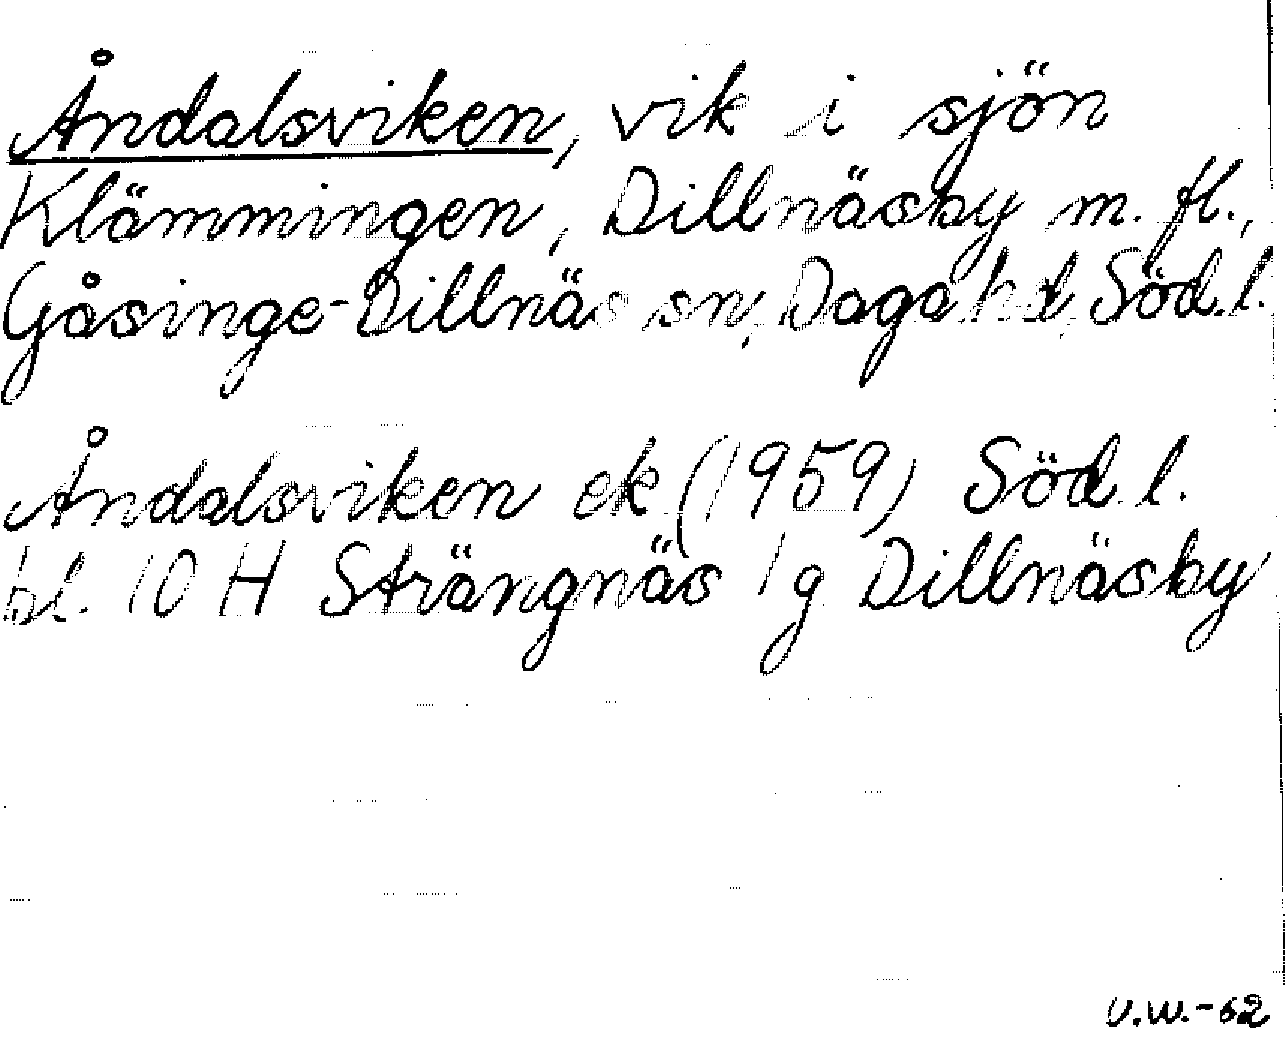 Åndalsviken, vik i sjön
Klämmingen, Dillnäsby m. fl.,
Gåsinge-Dillnäs sn, Daga hd, Söd.l.
Åndalsviken ek (1959) Söd.l.
bl. 10 H Strängnäs 1g Dillnäsby
U.W.-62